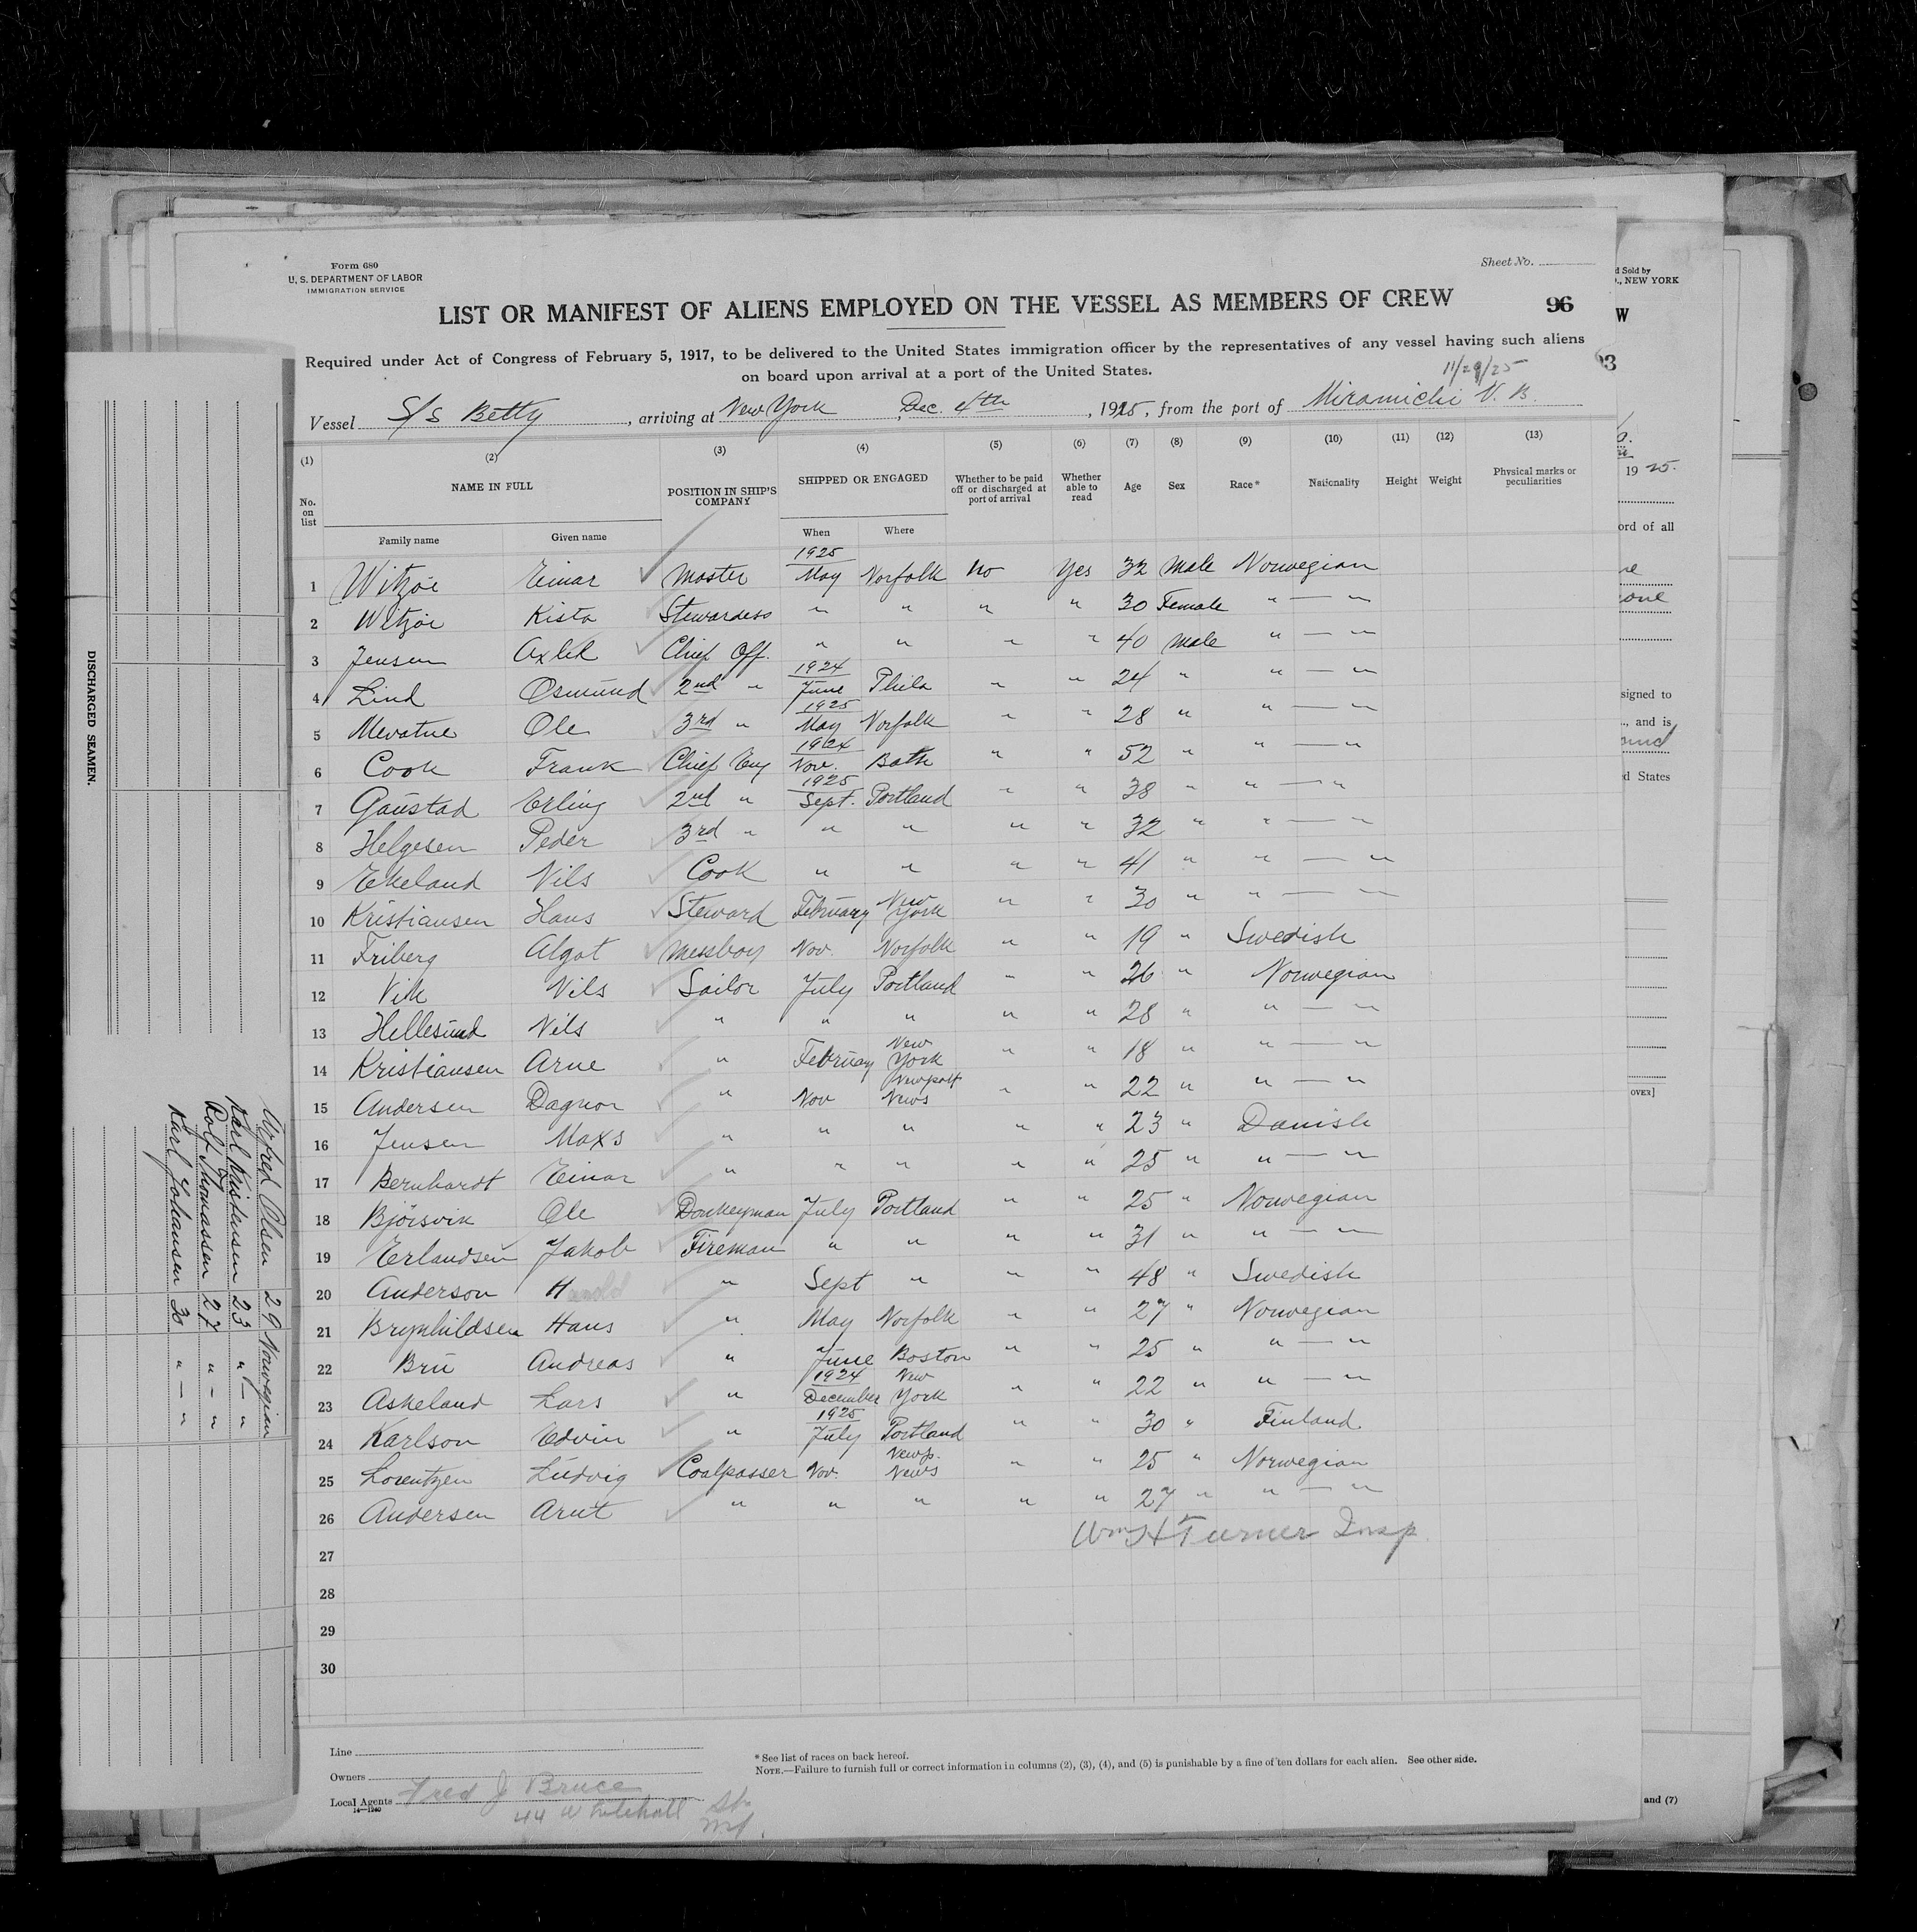 Form 680
U. S. DEPARTMENT OF LABOR
IMMIGRATION SERVICE
Sheet No.
LIST OR MANIFEST OF ALIENS EMPLOYED ON THE VESSEL AS MEMBERS OF CREW
96
Required under Act of Congress of February 5, 1917, to be delivered to the United States immigration officer by the representatives of any vessel having such aliens
on board upon arrival at a port of the United States.
11/29/25
Vessel S/S Betty, arriving at New York, Dec. 4th, 1925, from the port of Miramichi N. B.
(1) (2) (3) (4) (5) (6) (7) (8) (9) (10) (11) (12) (13)
No. on list NAME IN FULL POSITION IN SHIP'S COMPANY SHIPPED OR ENGAGED Whether to be paid off or discharged at port of arrival Whether able to read Age Sex Race* Nationality Height Weight Physical marks or peculiarities
Family name Given name When Where
1 Witzøe Einar Master 1925 May Norfolk No Yes 32 Male Norwegian
2 Witzøe Kista Stewardess " " " " 30 Female " — "
3 Jensen Axlek Chief Off. " " " " 40 Male " — "
4 Lind Osmund 2nd " 1924 June Phila " " 24 " " — "
5 Mevatne Ole 3rd " 1925 May Norfolk " " 28 " " — "
6 Cook Frank Chief Eng 1924 Nov. Bath " " 52 " " — "
7 Gaustad Erling 2nd " 1925 Sept. Portland " " 38 " " — "
8 Helgesen Peder 3rd " " " " " 32 " " — "
9 Ekeland Nils Cook " " " " 41 " " — "
10 Kristiansen Hans Steward February New York " " 30 " " — "
11 Friberg Algot Messboy Nov. Norfolk " " 19 " Swedish
12 Vik Nils Sailor July Portland " " 26 " Norwegian
13 Hellesund Nils " " " " " 28 " " — "
14 Kristiansen Arne " February New York " " 18 " " — "
15 Andersen Dagnor " Nov Newport News " " 22 " " — "
16 Jensen Maxs " " " " " 23 " Danish
17 Bernhardt Einar " " " " " 25 " " — "
18 Bjørsvik Ole Donkeyman July Portland " " 25 " Norwegian
19 Erlandsen Jakob Fireman " " " " 31 " " — "
20 Anderson Harold " Sept " " " 48 " Swedish
21 Brynhildsen Hans " May Norfolk " " 27 " Norwegian
22 Brü Andreas " June Boston " " 25 " " — "
23 Askeland Lars " 1924 December New York " " 22 " " — "
24 Karlson Edvin " 1925 July Portland " " 30 " Finland
25 Lorentzen Ludvig Coalpasser Nov. Newp. News " " 25 " Norwegian
26 Andersen Arnt " " " " " 27 " " — "
27
28
29
30
Wm H Turner Insp
Line
Owners
Local Agents Fred J Bruce
14—1240
44 Whitehall St.
* See list of races on back hereof.
NOTE.—Failure to furnish full or correct information in columns (2), (3), (4), and (5) is punishable by a fine of ten dollars for each alien. See other side.
DISCHARGED SEAMEN.
Alfred Olsen 29 Norwegian
Karl Kristensen 23 " — "
Rolf Thomassen 27 " — "
Karl Johansen 30 " — "
d Sold by
., NEW YORK
W
93
19 25.
ord of all
one
signed to
., and is
d States
OVER]
and (7)